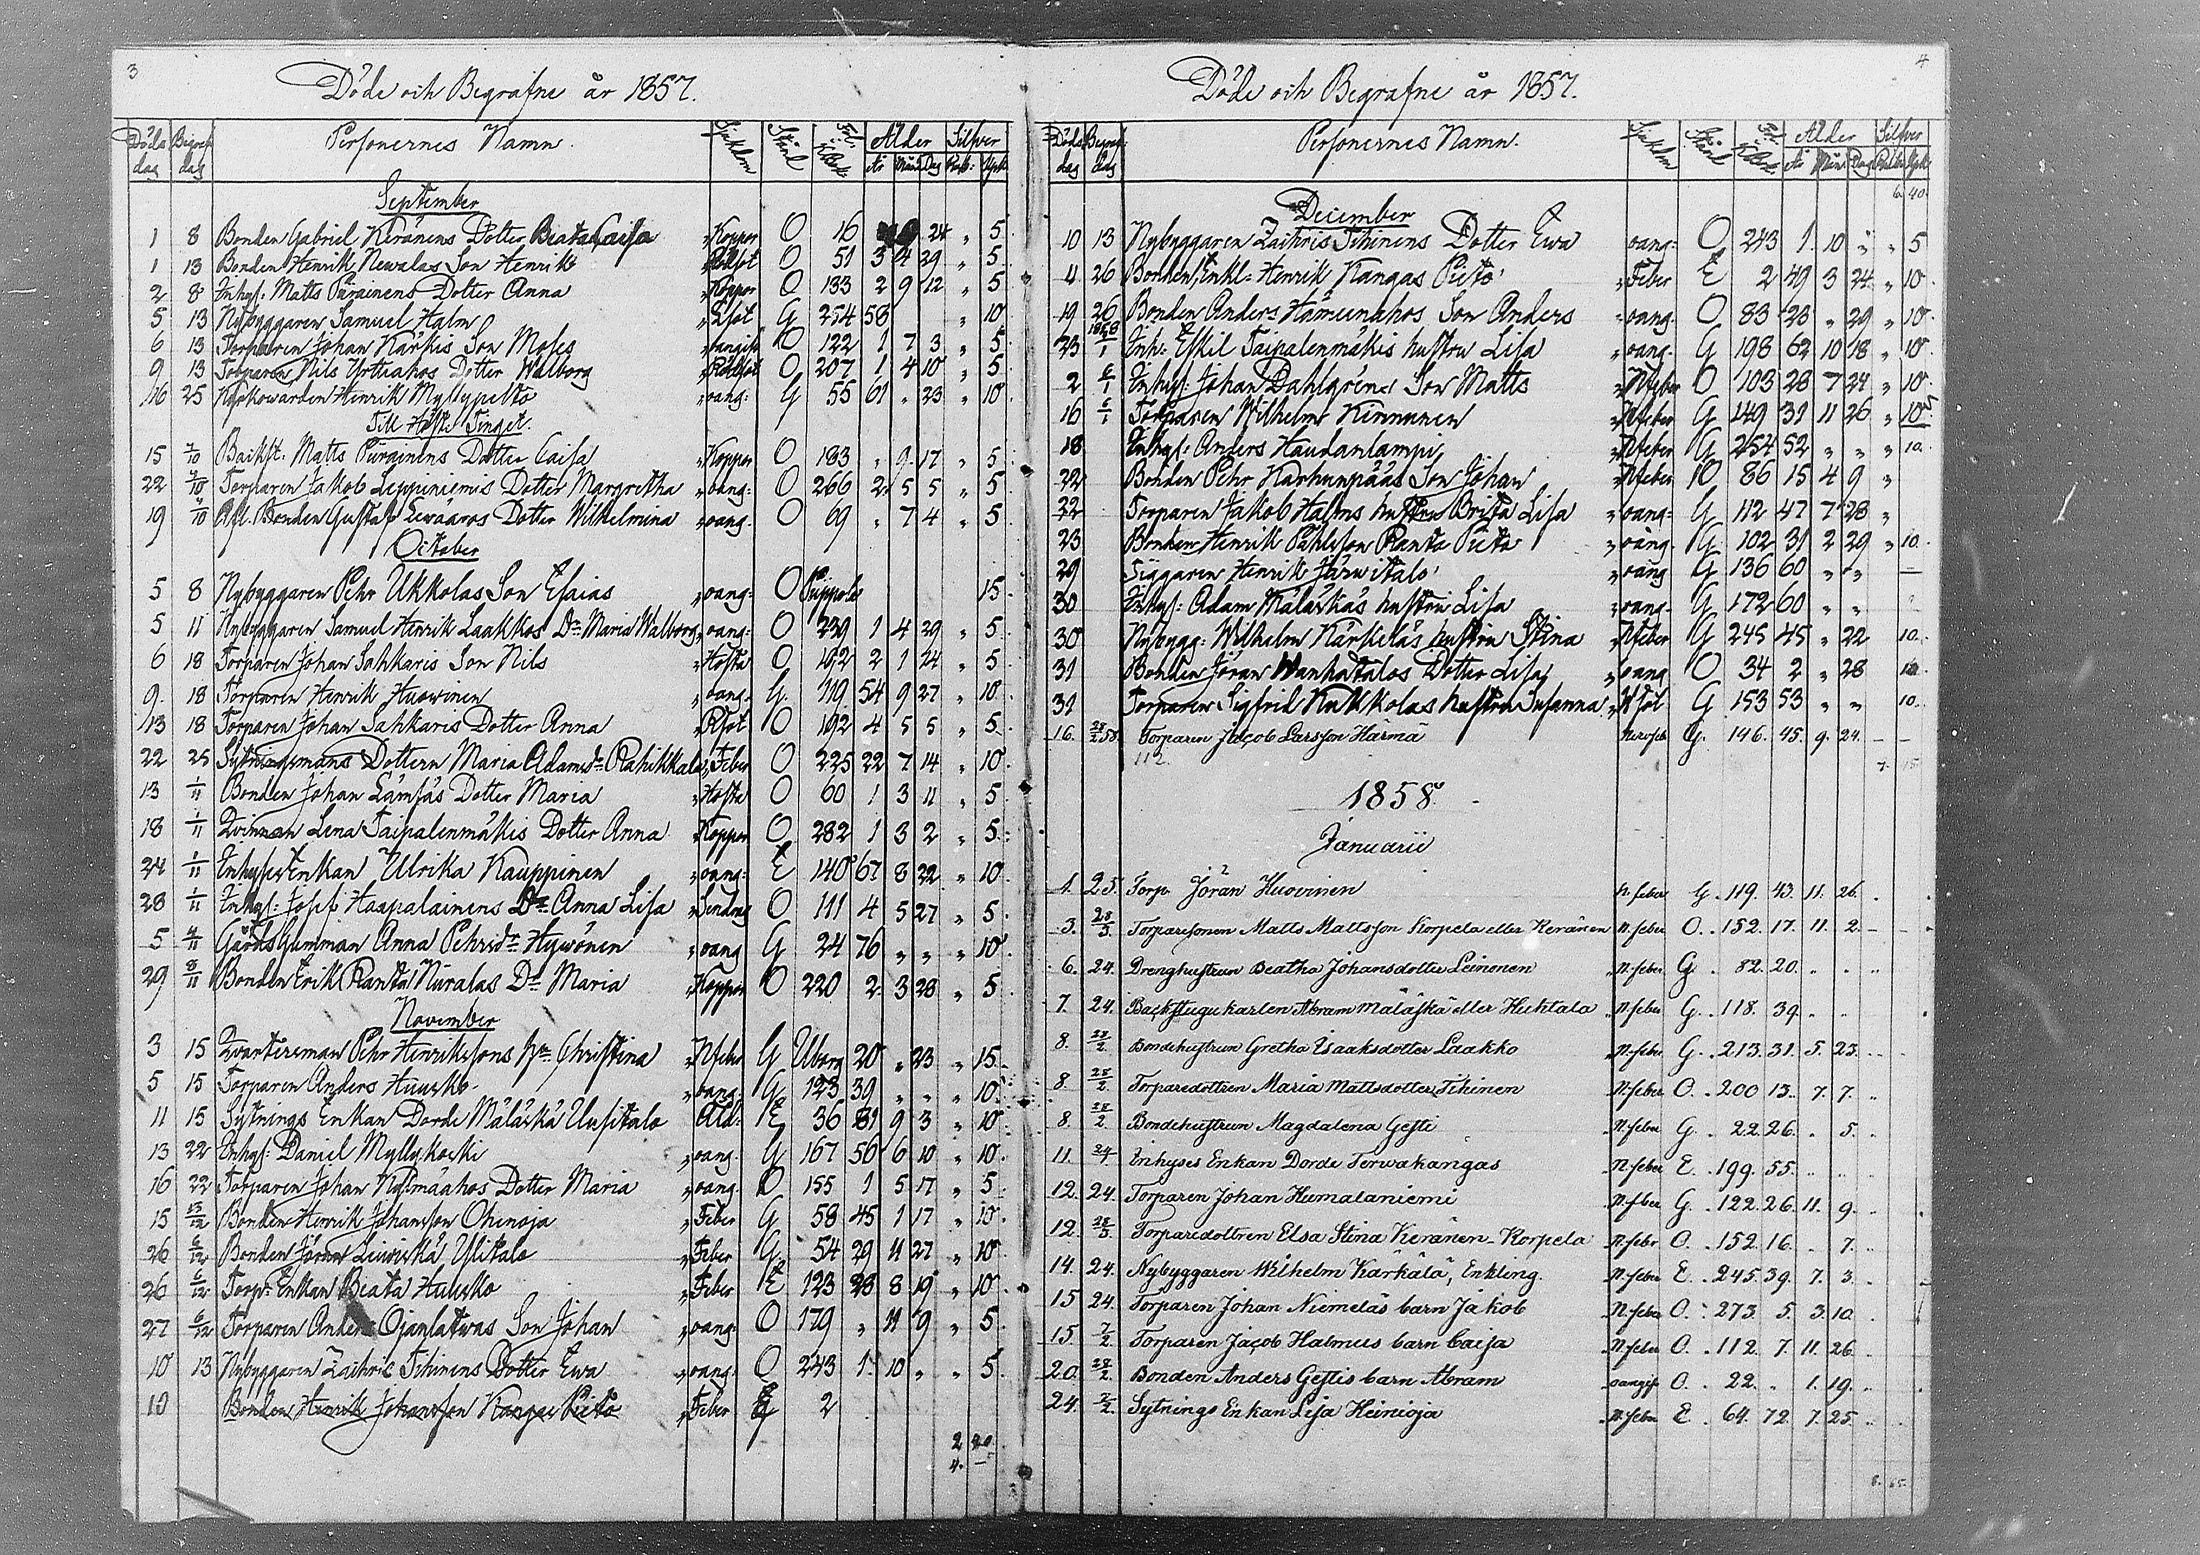 3
Döde och Begrafne år 1857.
Döda dag Begraf dag Personernes Namn. Sjukdom Stånd Fol. i K.Bok. Ålder Silfver
år Mån Dag Rub: Kop
September
1 8 Bonden Gabriel Keränens Dotter Beata Caisa „ Koppor O 16 24 „ 5
1 13 Bonden Henrik Newalas Son Henrik „ Rödsot O 51 3 4 29 „ 5
2 8 Inhys: Matts Pürainens Dotter Anna „ Koppor O 133 2 9 12 „ 5
5 13 Nybyggaren Samuel Halm „ Lsot G 254 58 „ 10
6 13 Torparen Johan Kärkis Son Moses „ oangif O 122 1 7 3 „ 5
9 13 Torparen Nils Yrttiahos Dotter Walborg „ Rödsot O 207 1 4 10 „ 5
16 25 Kyrkowärden Henrik Myllypelto „ oang: G 55 61 „ 23 „ 10
Till Höste Tinget.
15 7/10 Backst: Matts Pürainens Dotter Caisa „ Koppor O 183 „ 9 17 „ 5
22 4/10 Torparen Jakob Leppiniemis Dotter Margretha „ oang: O 266 2 5 5 „ 5
19 4/10 Afl. Bonden Gustaf Lewaaros Dotter Wilhelmina „ oang. O 69 „ 7 4 „ 5
October
5 8 Nybyggaren Pehr Ukkolas Son Esaias „ oang: O Piippola 15
5 11 Nybyggaren Samuel Henrik Laakkos Dr Maria Walborg „ oang: O 239 1 4 29 „ 5
6 18 Torparen Johan Sahkaris Son Nils „ Hosta O 192 2 1 24 „ 5
9. 18 Torparen Henrik Huowinen „ oang. G. 119 54 9 27 „ 10
13 18 Torparen Johan Sahkaris Dotter Anna „ Rsot O 192 4 5 5 „ 5
22 25 Sytningsmans Dottern Maria Adamsdr Rahikkala „ Feber O 225 22 7 14 „ 10
13 1/11 Bonden Johan Lämsäs Dotter Maria „ Hosta O 60 1 3 11 „ 5
18 1/11 Qvinnan Lena Taipalenmäkis Dotter Anna „ Koppor O 282 1 3 2 „ 5
24 1/11 Inhyses Enkan Ulrika Kauppinen „ oang: E 140 67 8 22 „ 10
28 1/11 Inhys: Josef Haapalainens Dr Anna Lisa „ Lindrag O 111 4 5 27 „ 5
5 4/11 Gårds Gumman Anna Pehrsdr Hywönen „ oang G 24 76 „ „ 10
29 8/11 Bonden Erik Ranta Nüralas Dr Maria „ Koppor O 220 2 3 28 „ 5
November
3 15 Qvartersman Pehr Henrikssons Hu Christina „ Nfeber G Uborg 20 „ 23 „ 15
5 15 Torparen Anders Huusko „ oang. G. 123 39 „ „ „ 10
11 15 Sytnings Enkan Dorde Mäläskä Uusitalo Åld: E 36 81 9 3 „ 10
13 22 Inhys: Daniel Myllykoski „ oang. G 167 56 6 10 „ 10
16 22 Torparen Johan Kylmäahos Dotter Maria „ oang. O 155 1 5 17 „ 5
15 13/12 Bonden Henrik Johansson Ohinoja „ Feber G 58 45 1 17 „ 10
26 6/12 Bonden Jöran Liwiskä Ylitalo „ Feber G. 54 29 11 27 „ 10
26 6/12 Torp: Enkan Beata Huusko „ Feber E 123 28 8 19 „ 10
27 6/12 Torparen Anders Ojanlatwas Son Johan „ oang. O 179 „ 11 9 „ 5
10 13 Nybyggaren Zachris Tihinens Dotter Ewa „ oang. O 243 1. 10 „ „ 5
10 Bonden Henrik Johansson Kangas Pieto „ Feber E 2
4. —
4
Döde och Begrafne år 1857.
Döde dag Begraf: dag Personernes Namn. Sjukdom Stånd Fol. K.Bok. Ålder Silfver
År Mån Dag Rub Kop
6. 40.
December
10 13 Nybyggaren Zachris Tihinens Dotter Ewa oang: O 243 1. 10 „ „ 5
11 26 Bonden, Enkl: Henrik Kangas Pieto „ Feber E 2 49 3 24 „ 10
19 26 Bonden Anders Hämeenahos Son Anders „ oang. O 83 23 „ 29 „ 10
1858
23 1 Inh: Eskil Taipalenmäkis hustru Lisa „ oang. G 198 62 10 18 „ 10
2 6/1 Inhys: Johan Dahlgrens Son Matts „ Nfeber O 103 28 7 24 „ 10
16 6/1 Torparen Wilhelm Kinnunen „ Nfeber G 149 31 11 26 „ 10
18 Inhys: Anders Haudanlampi „ Nfeber G 254 52 „ „ „ 10.
22 Bonden Pehr Karhunpääs Son Johan „ Nfeber O 86 15 4 9 „
22 Torparen Jakob Halms hustru Brita Lisa „ oang: G 112 47 7 28 „
23 Bonden Henrik Påhlsson Ranta Pieto „ oang. G 102 31 2 29 „ 10.
29 Tiggaren Henrik Järwitalo „ oang G 136 60 „ „ —
30 Inhys: Adam Mäläskäs hustru Lisa „ oang. G 172 60 „ „
30 Nybygg: Wilhelm Kärkeläs hustru Stina „ Nfeber G 245 45 „ 22 10.
31 Bonden Jöran Wanhatalos Dotter Lisa „ oang O 34 2 „ 28 10
31 Torparen Sigfrid Kukkolas hustru Susanna „ H sot G 153 53 „ „ 10.
16. 28/2 58 Torparen Jacob Larsson Härmä Nervfeb G. 146. 45. 9. 24. — —
112.
7. 15.
1858.
Januarii
1. 25. Torp. Jöran Huovinen N. feber G. 119. 43. 11. 26.
3. 28/3 Torparesonen Matts Mattsson Korpela eller Keränen N. feber O. 152. 17. 11. 2.
6. 24. Drenghustrun Beatha Johansdotter Leinonen N. feber G. 82. 20.
7. 24. Backstugukarlen Abram Mäläskä eller Huhtala N. feber G. 118. 39.
8. 28/2 Bondehustrun Gretha Isaaksdotter Laakko N. feber G. 213. 31. 5. 23.
8. 28/2 Torparedottren Maria Mattsdotter Tihinen N. feber O. 200 13. 7. 7.
8. 28/2 Bondehustrun Magdalena Gefti N. feber G. 22. 26. „ 5.
11. 24/1 Inhyses Enkan Dorde Terwakangas N. feber E. 199. 55.
12. 24. Torparen Johan Humalaniemi N. feber G. 122. 26. 11. 9.
12. 28/3 Torparedottren Elsa Stina Keränen - Korpela N. febr O. 152. 16. „ 7.
14. 24. Nybyggaren Wilhelm Kärkälä, Enkling. N. feber E. 245. 39. 7. 3.
15 24. Torparen Johan Niemeläs barn Jakob N. feber O. 273. 5. 3. 10.
15. 7/2 Torparen Jacob Halmus barn Caisa N. feber O. 112. 7. 11. 26.
20. 28/2 Bonden Anders Geftis barn Abram oangif O. 22. „ 1. 19.
24. 7/2 Sytnings Enkan Lisa Heinioja N. feber E. 64. 72. 7. 25.
8. 65.